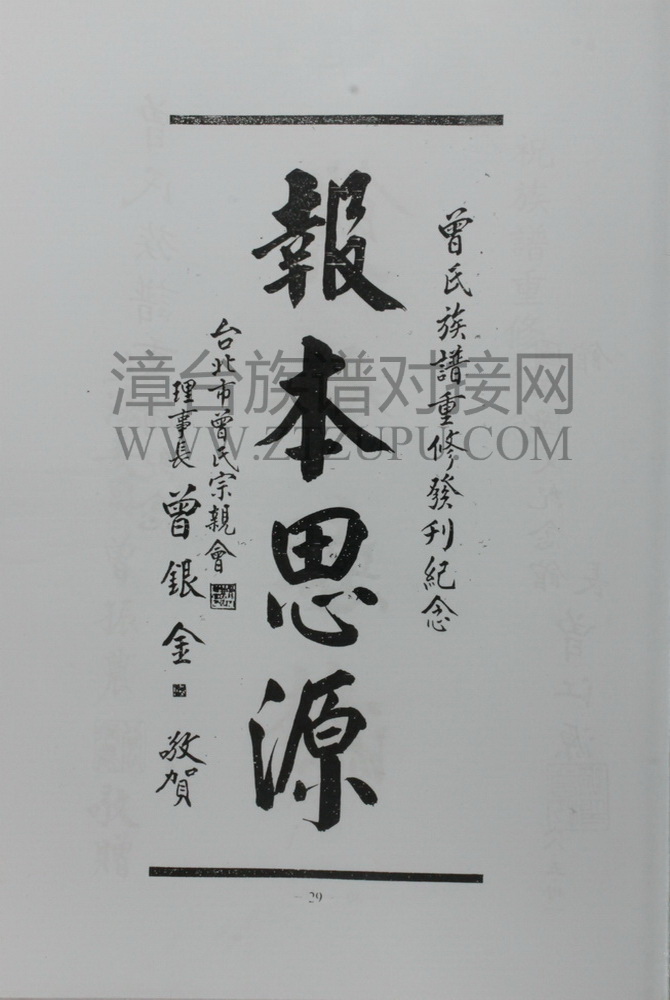 曾氏族譜重修發刊紀念
報本思源
台北市曾氏宗親會
理事長 曾銀金 敬賀
漳台族谱对接网
WWW.ZTZUPU.COM
— 29 —